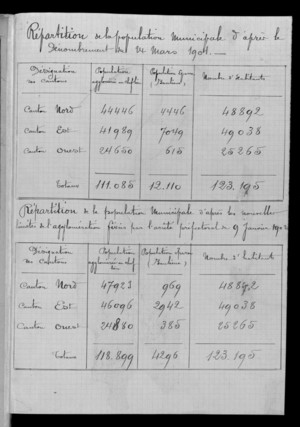 Répartition de la population Municipale d'après le
Dénombrement du 24 Mars 1901.
Désignation des Cantons Population agglomérée Population Éparse Nombre d'Habitants
Canton Nord 44446 4446 48892
Canton Est 41989 7049 49038
Canton Ouest 24650 615 25265
Totaux 111.085 12.110 123.195
Répartition de la population Municipale d'après les nouvelles
limites de l'agglomération fixées par l'arrêté préfectoral du 9 Janvier
Désignation des Cantons Population agglomérée Population Éparse Nombre d'Habitants
Canton Nord 47923 969 48892
Canton Est 46096 2942 49038
Canton Ouest 24880 385 25265
Totaux 118.899 4296 123.195